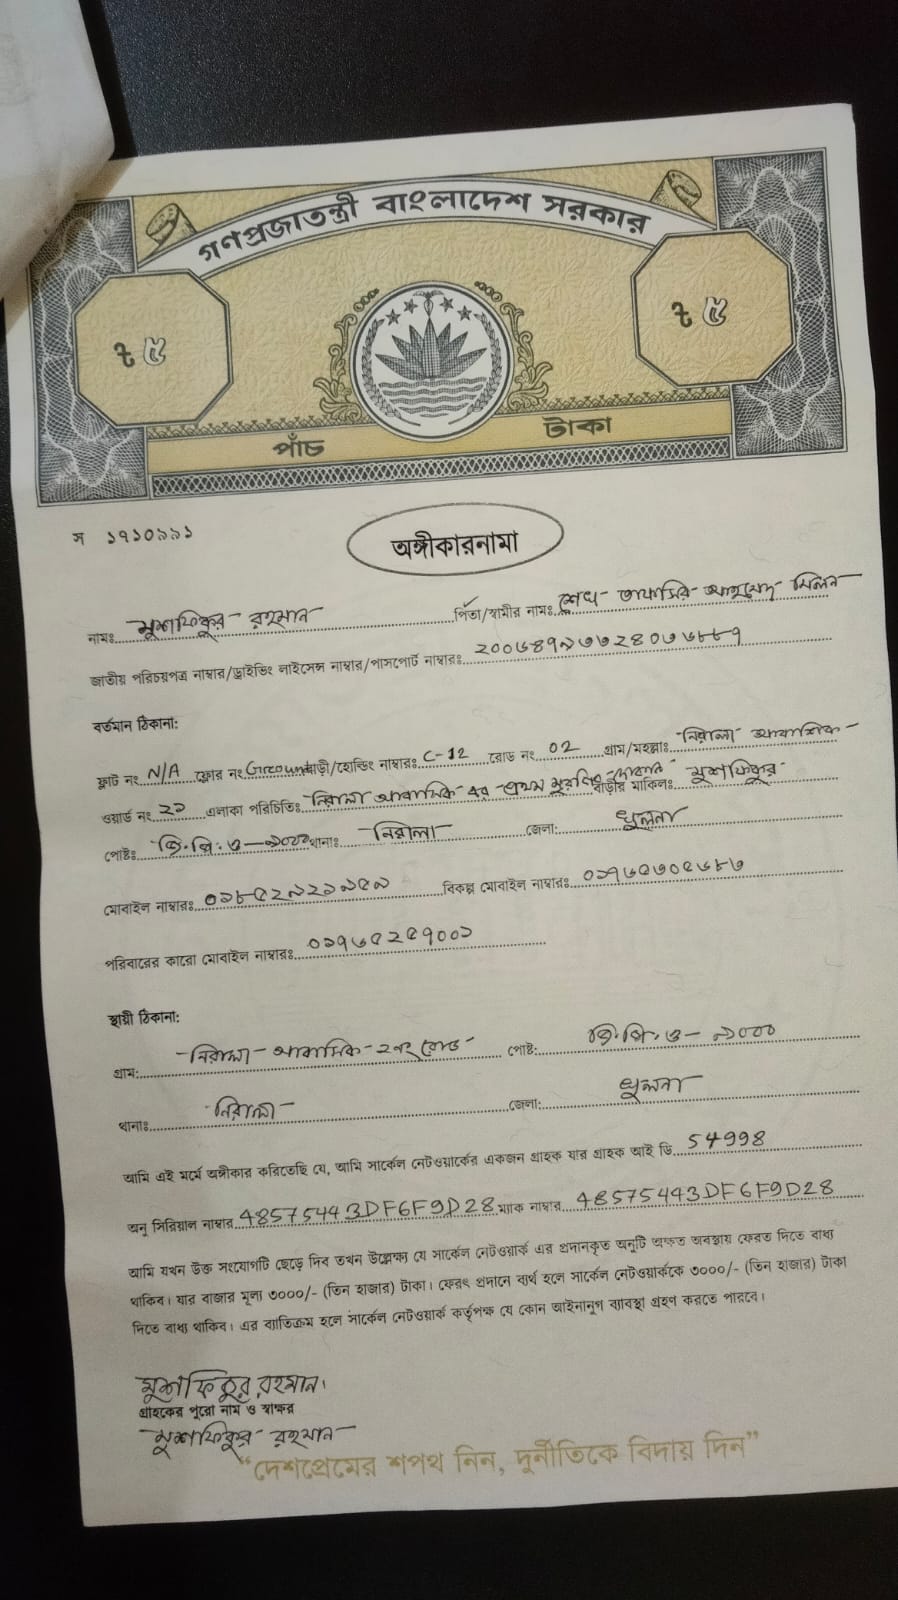 গণপ্রজাতন্ত্রী বাংলাদেশ সরকার
৳ ৫ ৳ ৫
পাঁচ টাকা
স ১৭১০৯৯১
অঙ্গীকারনামা
নামঃ মুশফিকুর রহমান পিতা/স্বামীর নামঃ শেখ আহমেদ মিলন
জাতীয় পরিচয়পত্র নাম্বার/ড্রাইভিং লাইসেন্স নাম্বার/পাসপোর্ট নাম্বারঃ
বর্তমান ঠিকানা:
ফ্লাট নং N/A ফ্লোর নং Ground বাড়ী/হোল্ডিং নাম্বারঃ C-12 রোড নং 02 গ্রাম/মহল্লাঃ নিরালা আবাসিক
ওয়ার্ড নং এলাকা পরিচিতিঃ নিরালা আবাসিক এর প্রথম বাড়ীর মালিকঃ মুশফিকুর
পোষ্টঃ জি.পি.ও-৯০০০ থানাঃ নিরালা জেলা: খুলনা
মোবাইল নাম্বারঃ ০১৮৫২৯২১৯৫৯ বিকল্প মোবাইল নাম্বারঃ
পরিবারের কারো মোবাইল নাম্বারঃ ০১৭৬৫২৫৭০০১
স্থায়ী ঠিকানা:
গ্রাম: নিরালা আবাসিক ২নং রোড পোষ্ট: জি.পি.ও-৯০০০
থানাঃ নিরালা জেলা: খুলনা
আমি এই মর্মে অঙ্গীকার করিতেছি যে, আমি সার্কেল নেটওয়ার্কের একজন গ্রাহক যার গ্রাহক আই ডি 54998
অনু সিরিয়াল নাম্বার 48575443DF6F9D28 ম্যাক নাম্বার 48575443DF6F9D28
আমি যখন উক্ত সংযোগটি ছেড়ে দিব তখন উল্লেক্ষ্য যে সার্কেল নেটওয়ার্ক এর প্রদানকৃত অনুটি অক্ষত অবস্থায় ফেরত দিতে বাধ্য
থাকিব। যার বাজার মূল্য ৩০০০/- (তিন হাজার) টাকা। ফেরৎ প্রদানে ব্যর্থ হলে সার্কেল নেটওয়ার্ককে ৩০০০/- (তিন হাজার) টাকা
দিতে বাধ্য থাকিব। এর ব্যতিক্রম হলে সার্কেল নেটওয়ার্ক কর্তৃপক্ষ যে কোন আইনানুগ ব্যবস্থা গ্রহণ করতে পারবে।
মুশফিকুর রহমান।
গ্রাহকের পুরো নাম ও স্বাক্ষর
মুশফিকুর রহমান
“দেশপ্রেমের শপথ নিন, দুর্নীতিকে বিদায় দিন”